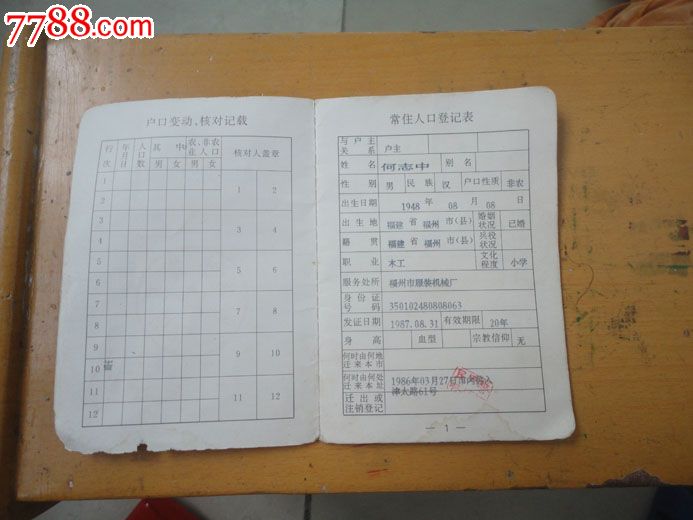 7788.com
中国收藏热线
户口变动、核对记载
行次 年月日 人口数 其中 农、非农业人口 核对人盖章
男 女 男 女
1
2
3
4
5
6
7
8
9
10
11
12
1 2
3 4
5 6
7 8
9 10
11 12
常住人口登记表
与户主关系 户主
姓名 何志中 别名
性别 男 民族 汉 户口性质 非农
出生日期 1948 年 08 月 08 日
出生地 福建 省 福州 市(县) 婚姻状况 已婚
籍贯 福建 省 福州 市(县) 兵役状况
职业 木工 文化程度 小学
服务处所 福州市服装机械厂
身份证号码 350102480808063
发证日期 1987.08.31 有效期限 20年
身高 血型 宗教信仰 无
何时由何地迁来本市
何时由何处迁来本址 1986年03月27日市内
津太路61号
迁出或注销登记
— 1 —